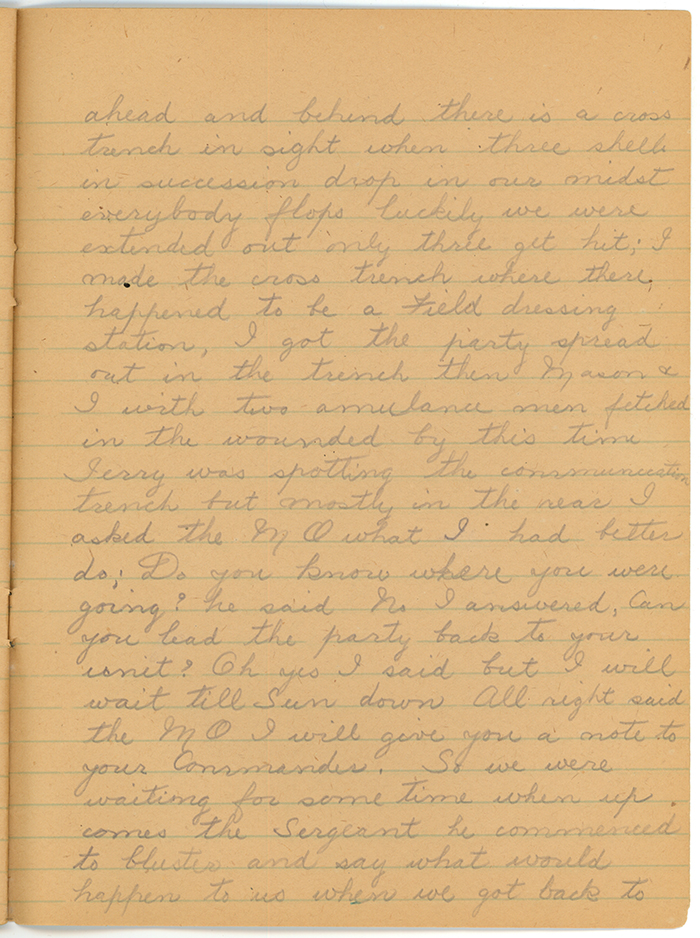 ahead and behind there is a cross
trench in sight when three shells
in succession drop in our midst
everybody flops luckily we were
extended out only three get hit; I
made the cross trench where there
happened to be a Field dressing
station, I got the party spread
out in the trench then Mason &
I with two amulance men fetched
in the wounded by this time
Jerry was spotting the communication
trench but mostly in the rear I
asked the M O what I had better
do; Do you know where you were
going? he said No I answered, Can
you lead the party back to your
unit? Oh yes I said but I will
wait till Sun down All right said
the M O I will give you a note to
your Commander. So we were
waiting for some time when up
comes the Sergeant he commenced
to bluster and say what would
happen to us when we got back to